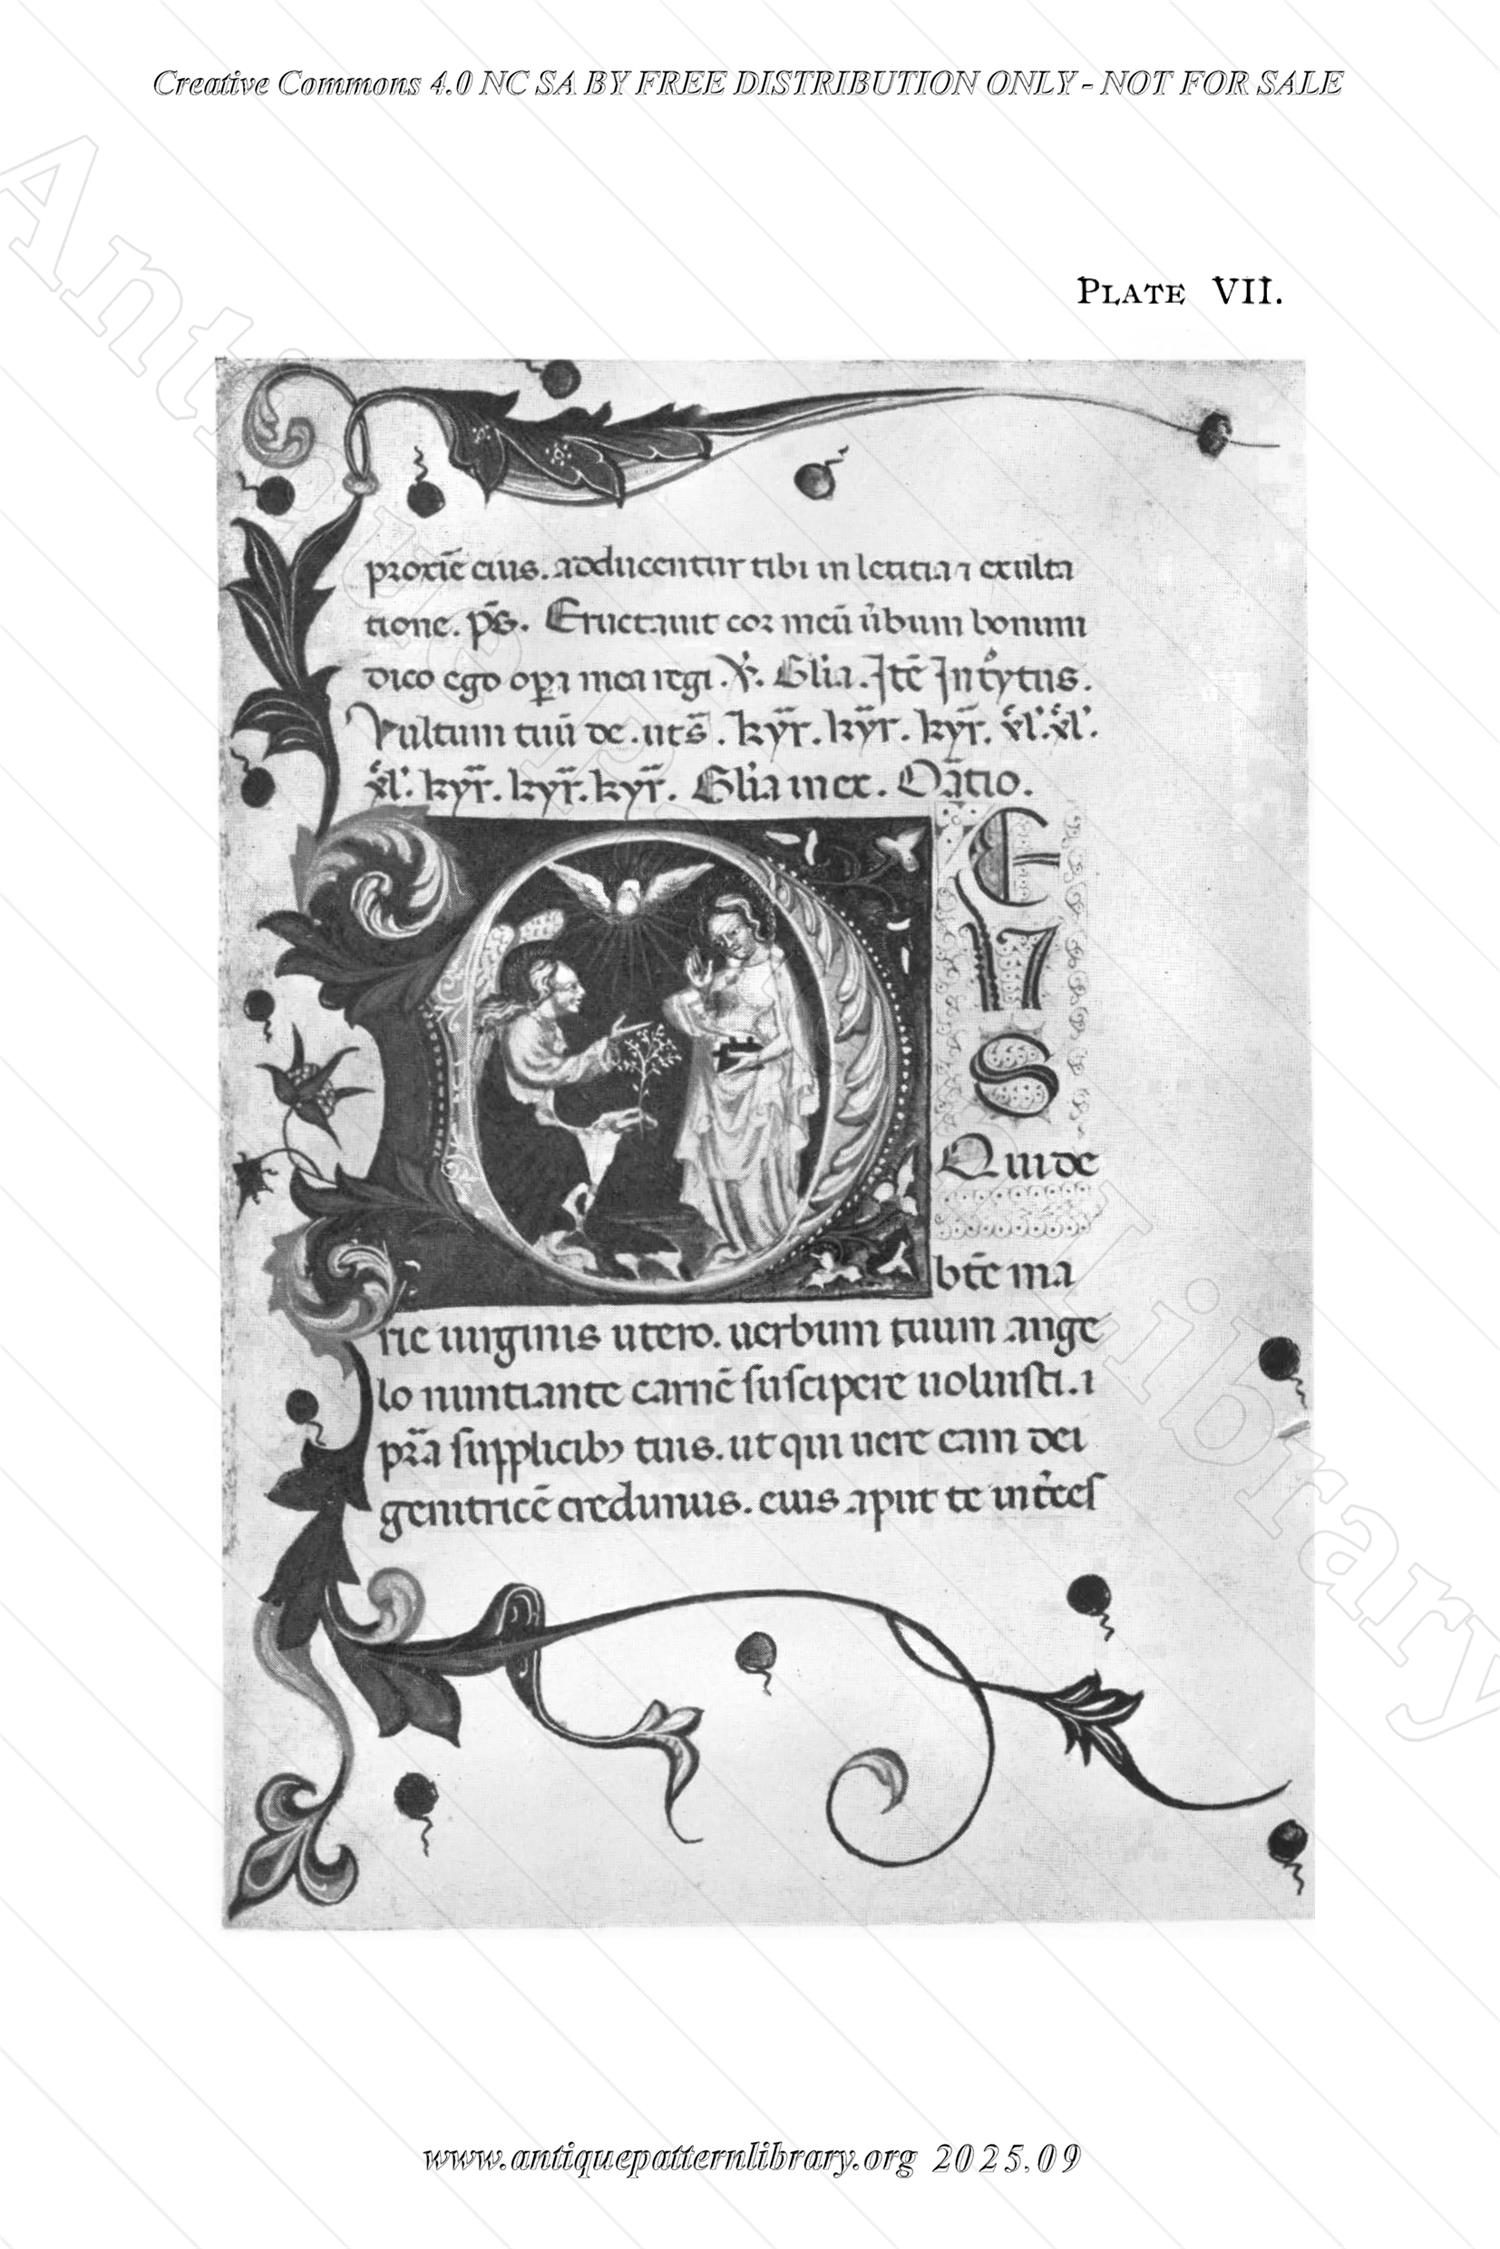 Creative Commons 4.0 NC SA BY FREE DISTRIBUTION ONLY - NOT FOR SALE
PLATE VII.
proxīe eius. adducentur tibi in letitia ⁊ exulta
tione. p̄s. Eructauit cor meū ůbum bonum
dico ego oꝑa mea regi. ℣. Glia. Itē Intrytus.
Vultum tuū de. ut s̄. kyr̄. kyr̄. kyr̄. xl'. xl'.
xl'. kyr̄. kyr̄. kyr̄. Glia in ex. Or̄atio.
DEUS
Qui de
btē ma
rie uirginis utero. uerbum tuum ange
lo nuntiante carnē suscipere uoluisti. ⁊
pr̄a supplicibꝫ tuis. ut qui uere eam dei
genitricē credimus. eius aput te int̓ces
Antique Pattern Library
www.antiquepatternlibrary.org 2025.09